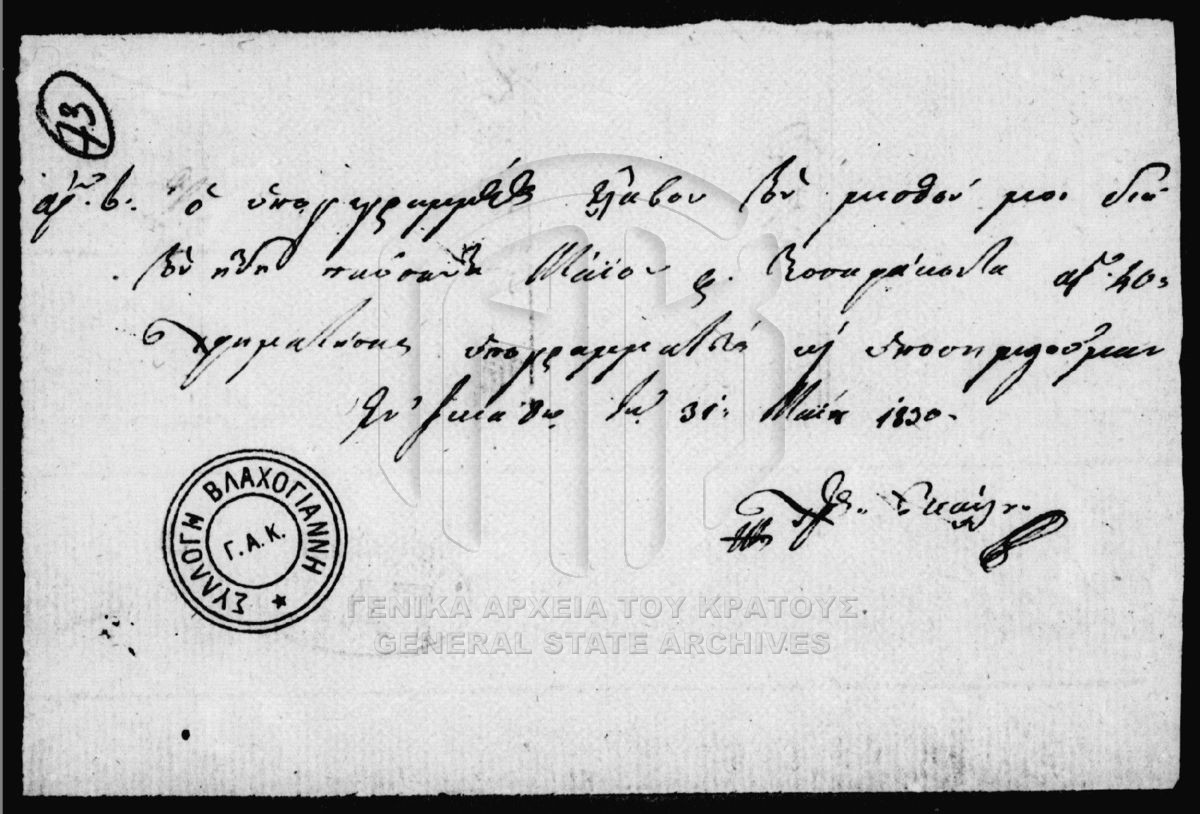 73
ἀρ. β. ὁ ὑπογεγραμμένος ἔλαβον τὸν μισθόν μου διὰ
τὸν ἤδη παύσαντα Μάϊον φ. τεσσαράκοντα ἀρ. 40:
χρηματίσας ὑπογραμματεύς καὶ ὑποσημειοῦμαι
Ἐν Σκιάθῳ τῇ 31: Μαΐου 1830.
ΣΥΛΛΟΓΗ ΒΛΑΧΟΓΙΑΝΝΗ
Γ.Α.Κ.
ΓΕΝΙΚΑ ΑΡΧΕΙΑ ΤΟΥ ΚΡΑΤΟΥΣ
GENERAL STATE ARCHIVES